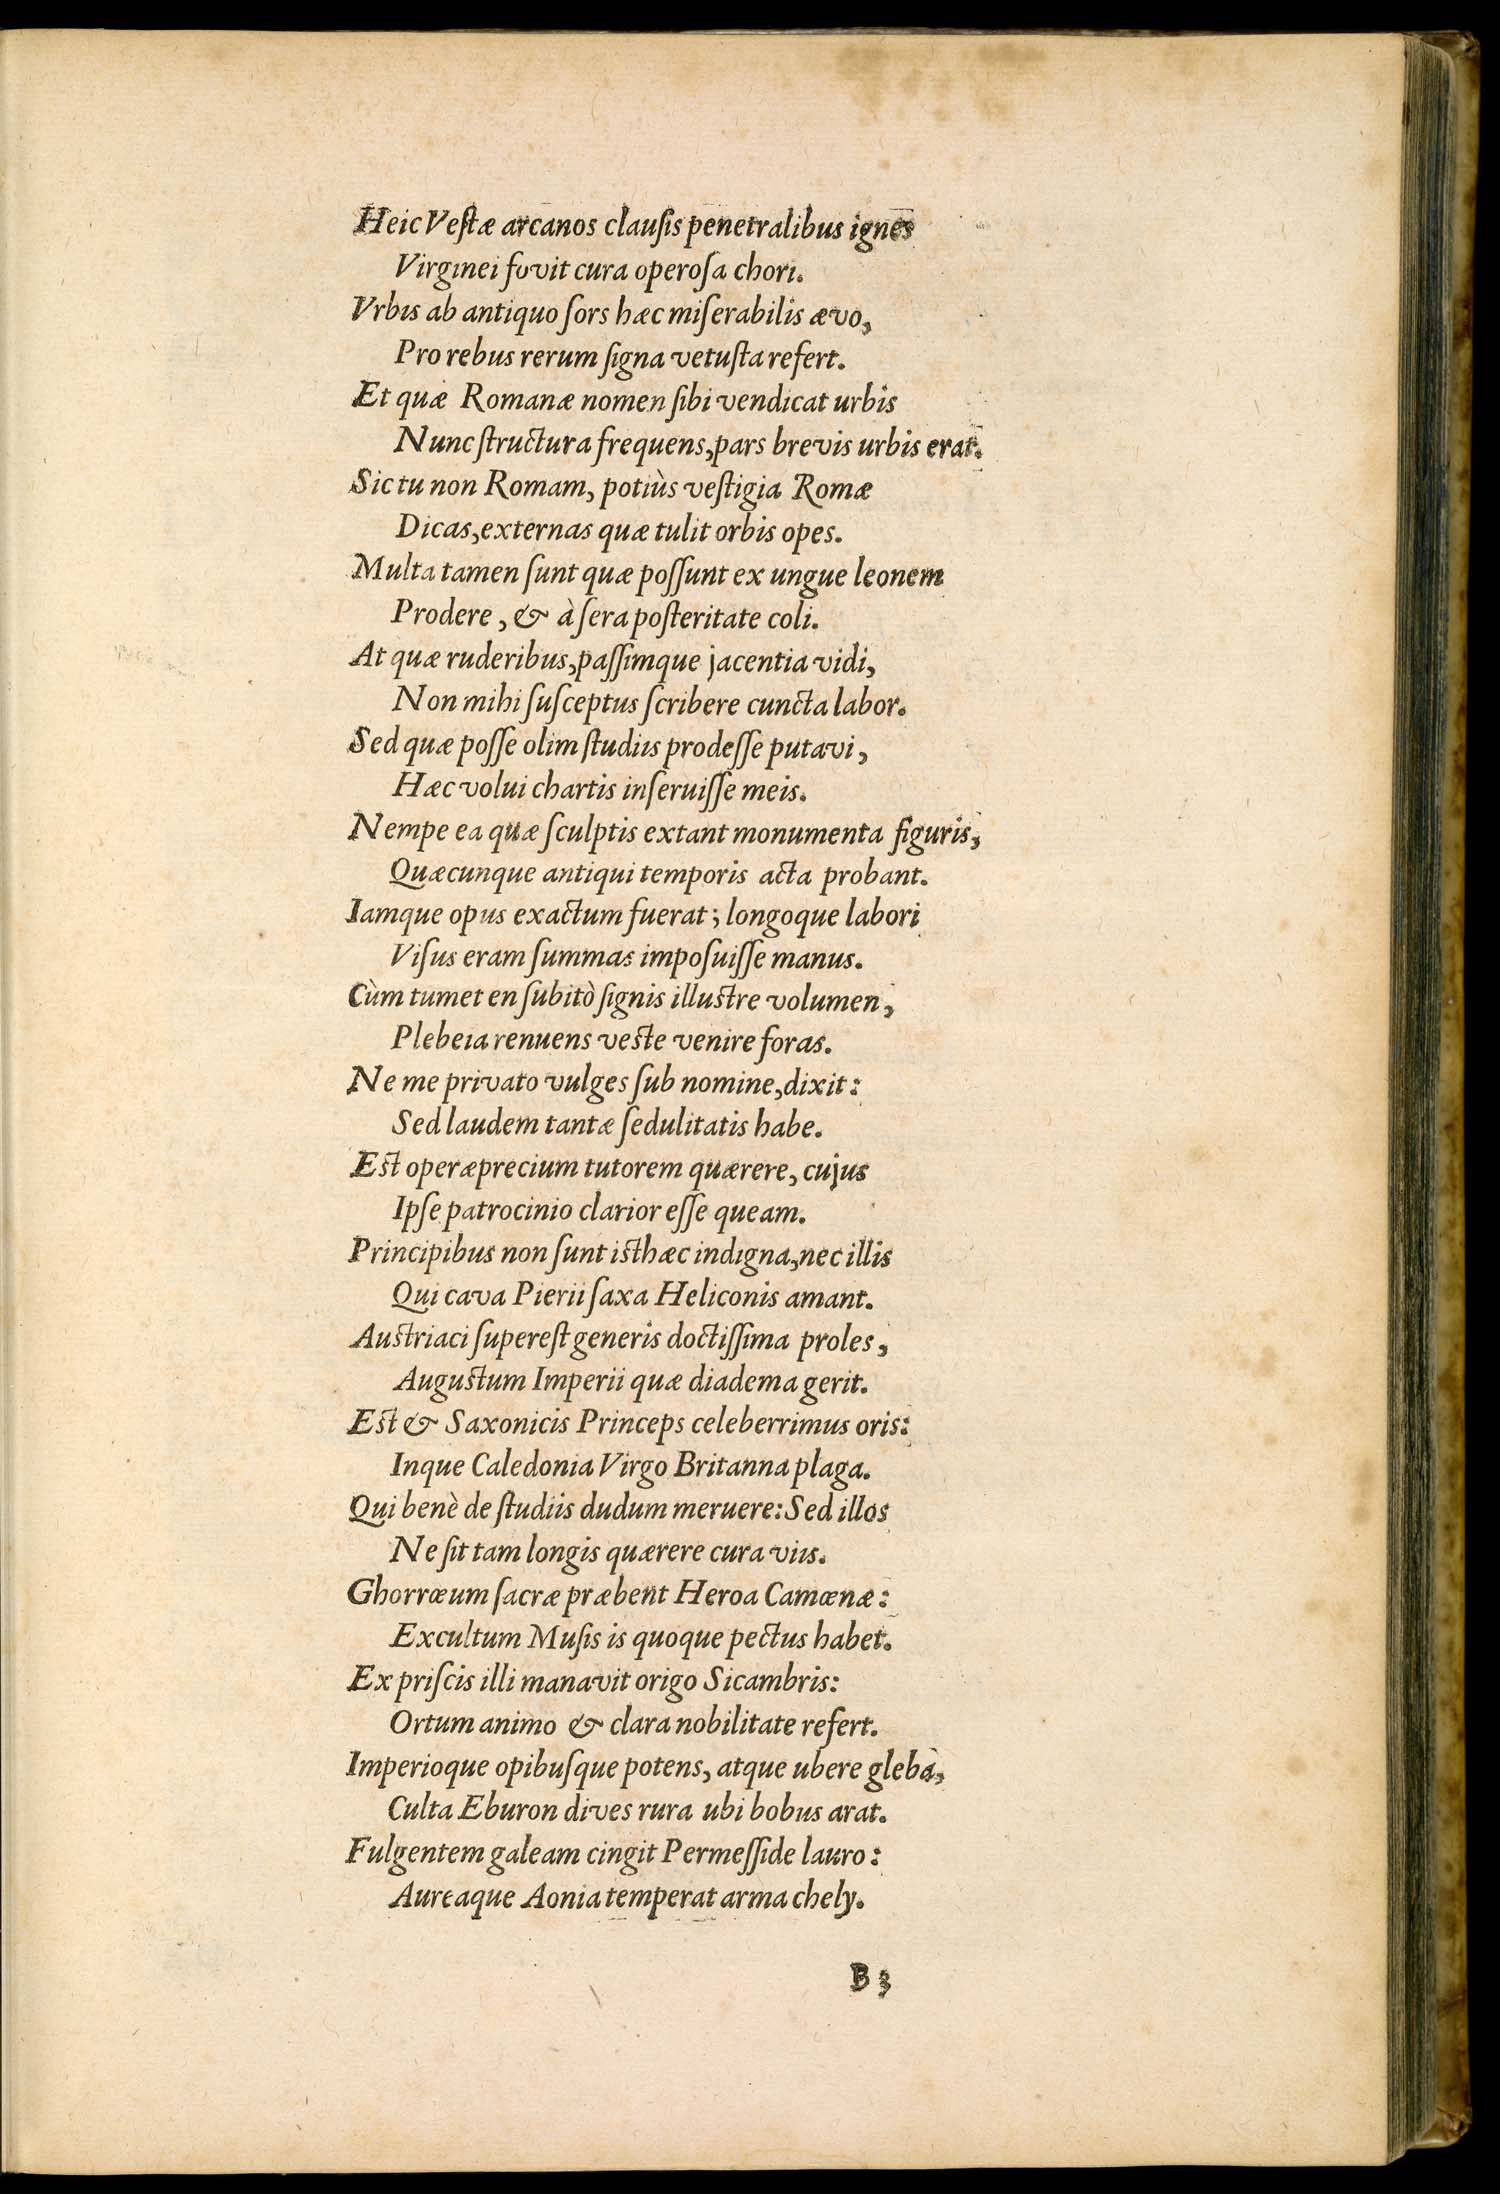 Heic Vestæ arcanos clausis penetralibus ignes
Virginei fovit cura operosa chori.
Vrbis ab antiquo sors hæc miserabilis ævo,
Pro rebus rerum signa vetusta refert.
Et quæ Romanæ nomen sibi vendicat urbis
Nunc structura frequens, pars brevis urbis erat.
Sic tu non Romam, potiùs vestigia Romæ
Dicas, externas quæ tulit orbis opes.
Multa tamen sunt quæ possunt ex ungue leonem
Prodere, & à sera posteritate coli.
At quæ ruderibus, passimque jacentia vidi,
Non mihi susceptus scribere cuncta labor.
Sed quæ posse olim studiis prodesse putavi,
Hæc volui chartis inseruisse meis.
Nempe ea quæ sculptis extant monumenta figuris,
Quæcunque antiqui temporis acta probant.
Iamque opus exactum fuerat; longoque labori
Visus eram summas imposuisse manus.
Cùm tumet en subitò signis illustre volumen,
Plebeia renuens veste venire foras.
Ne me privato vulges sub nomine, dixit:
Sed laudem tantæ sedulitatis habe.
Est operæprecium tutorem quærere, cujus
Ipse patrocinio clarior esse queam.
Principibus non sunt isthæc indigna, nec illis
Qui cava Pierii saxa Heliconis amant.
Austriaci superest generis doctissima proles,
Augustum Imperii quæ diadema gerit.
Est & Saxonicis Princeps celeberrimus oris:
Inque Caledonia Virgo Britanna plaga.
Qui benè de studiis dudum meruere: Sed illos
Ne sit tam longis quærere cura viis.
Ghorrœum sacræ præbent Heroa Camœnæ:
Excultum Musis is quoque pectus habet.
Ex priscis illi manavit origo Sicambris:
Ortum animo & clara nobilitate refert.
Imperioque opibusque potens, atque ubere glebà,
Culta Eburon dives rura ubi bobus arat.
Fulgentem galeam cingit Permesside lauro:
Aureaque Aonia temperat arma chely.
B 3